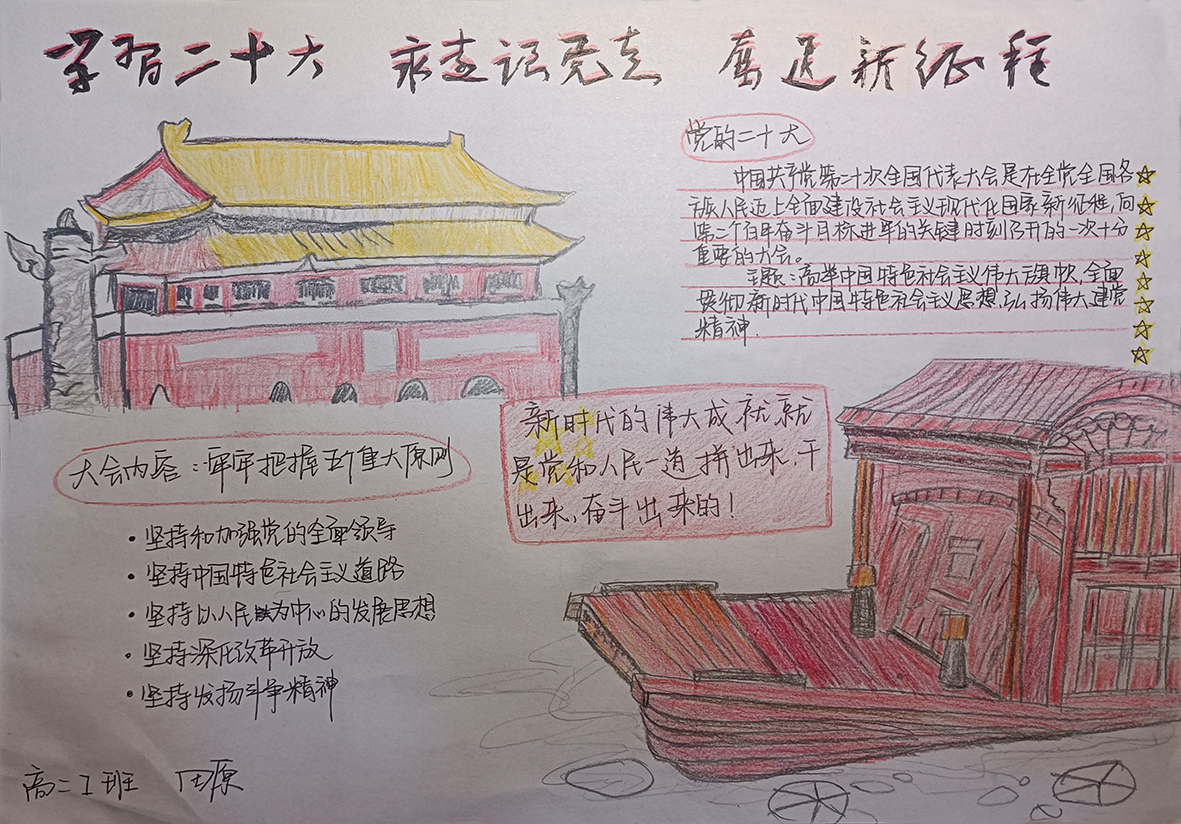 学习二十大 永走记党走 奮迈新征程
党的二十大
中国共产党第二十次全国代表大会是在全党全国各
族人民迈上全面建设社会主义现代化国家新征程,向
第二个百年奋斗目标进军的关键时刻召开的一次十分
重要的大会。
主题:高举中国特色社会主义伟大旗帜,全面
贯彻新时代中国特色社会主义思想,弘扬伟大建党
精神.
新时代的伟大成就就
是党和人民一道拼出来,干
出来,奋斗出来的!
大会内容:牢牢把握五个重大原则
·坚持和加强党的全面领导
·坚持中国特色社会主义道路
·坚持以人民为中心的发展思想
·坚持深化改革开放
·坚持发扬斗争精神
高二1班 原